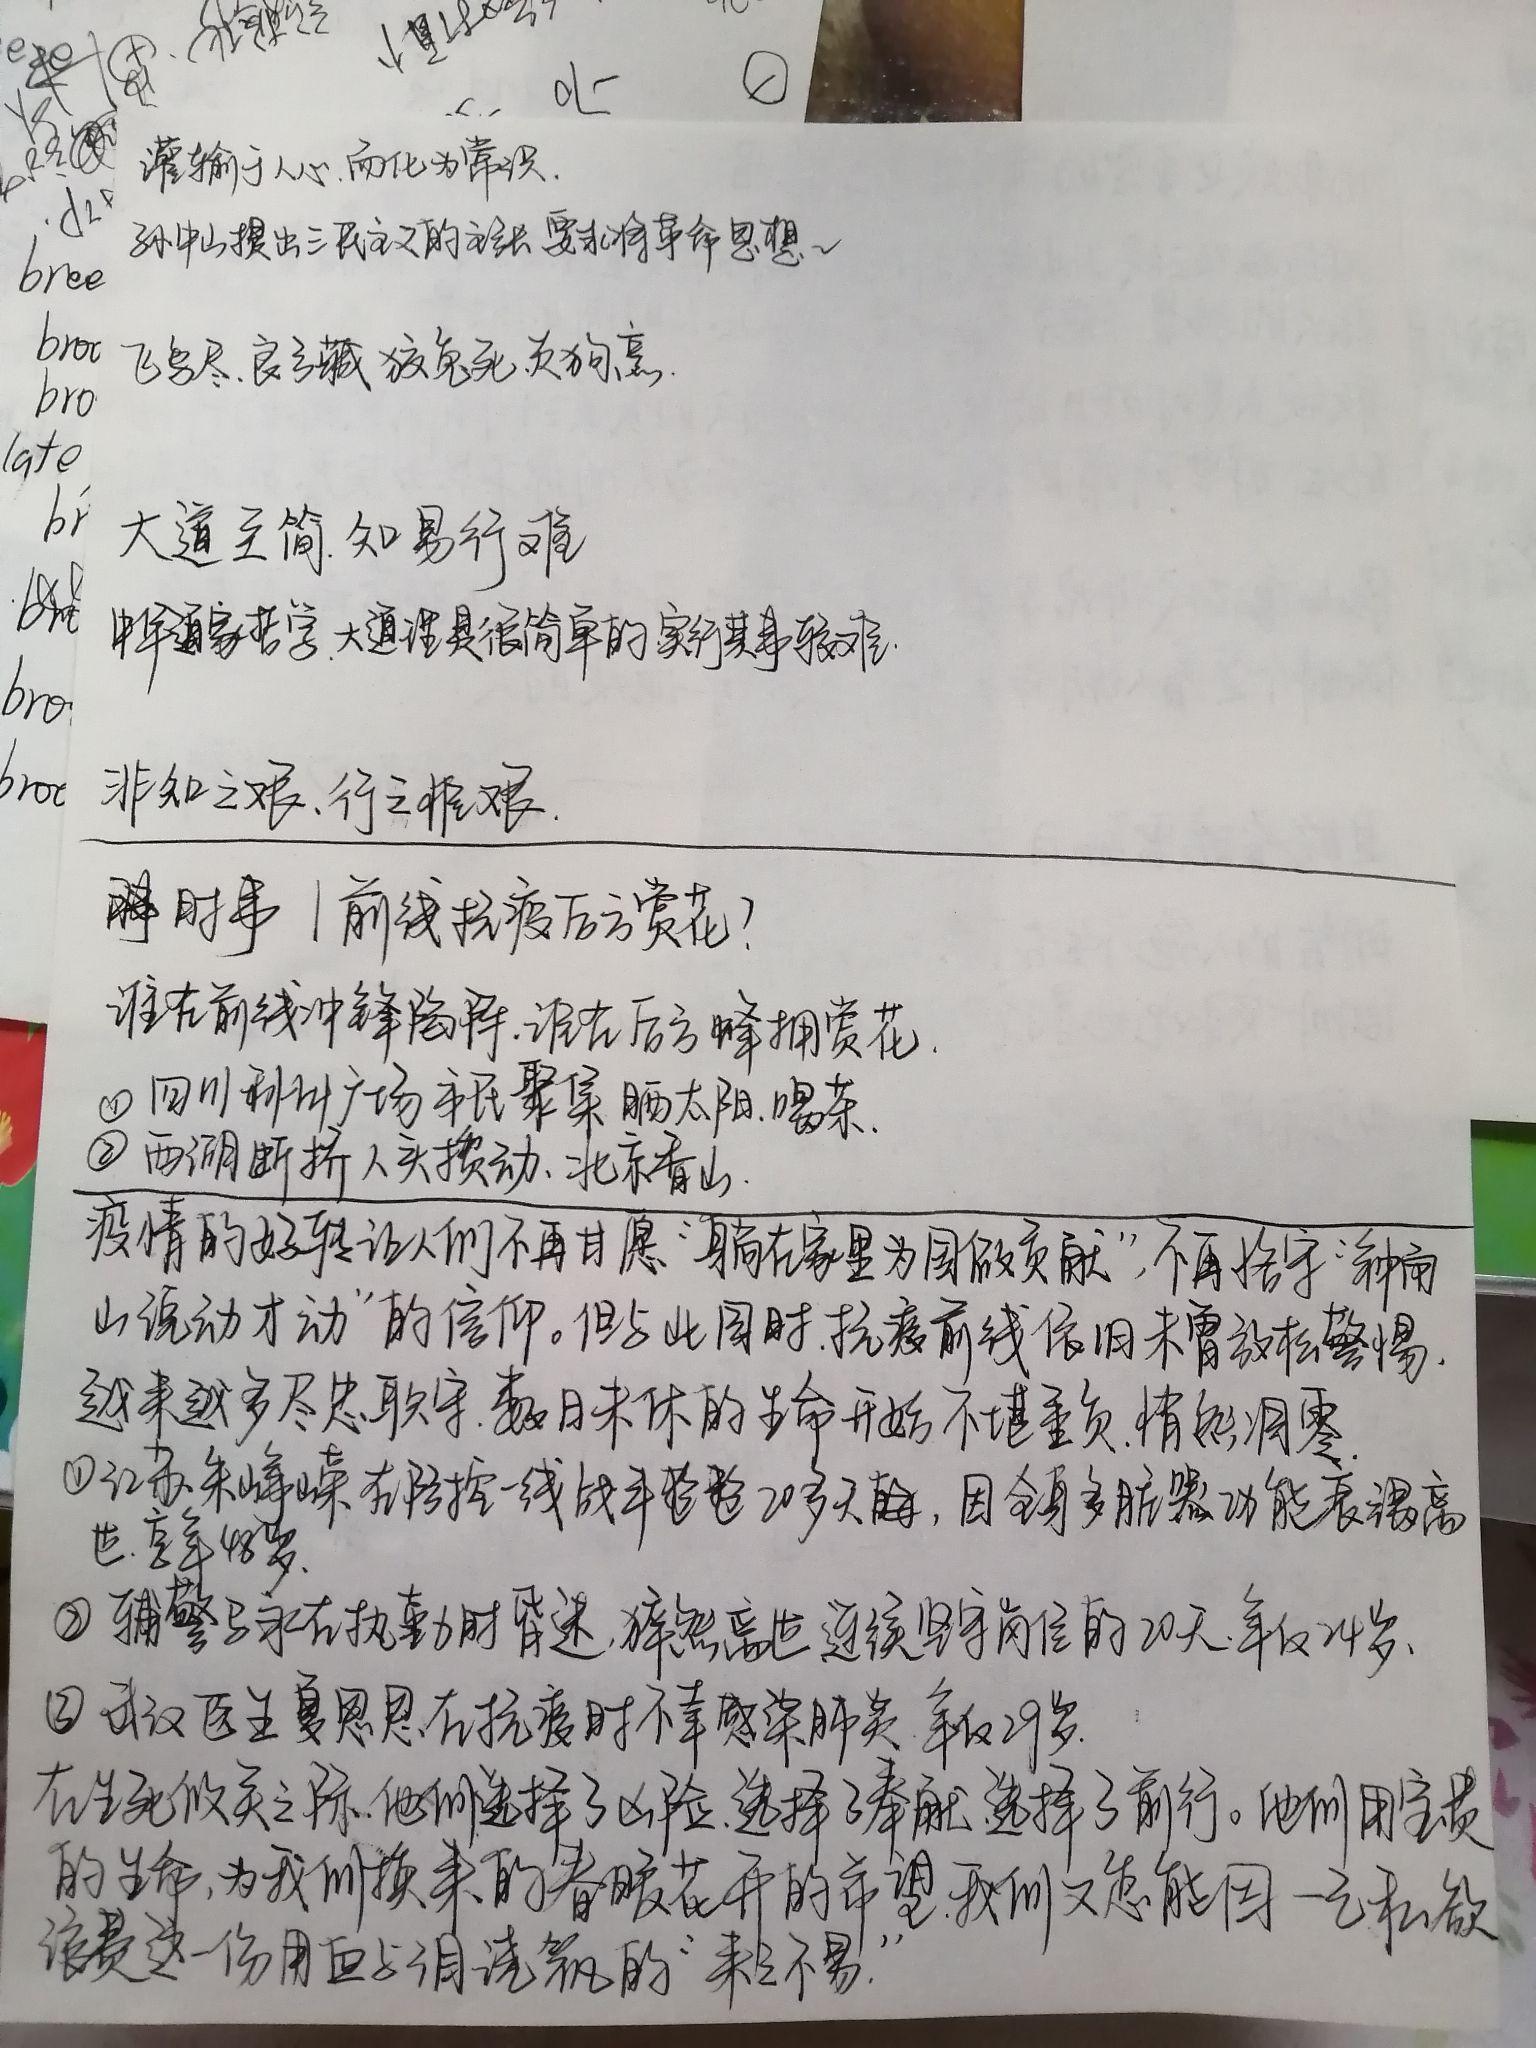 灌输于人心.而化为常识.
孙中山提出三民主义的主张 要求将革命思想~
飞鸟尽.良弓藏 狡兔死.走狗烹.
大道至简.知易行难
中华道家哲学.大道理是很简单的 实行其事较难.
非知之艰、行之惟艰.
时事 | 前线抗疫后方赏花?
谁在前线冲锋陷阵.谁在后方蜂拥赏花.
① 四川利州广场市民聚集晒太阳.喝茶.
② 西湖断桥人头攒动、北京香山.
疫情的好转让人们不再甘愿“躺在家里为国做贡献”,不再恪守“钟南
山说动才动”的信仰。但与此同时.抗疫前线依旧未曾放松警惕.
越来越多尽忠职守.数日未休的生命开始不堪重负.悄然凋零.
① 江苏朱峥嵘在防控一线战斗 20多天,因全身多脏器功能衰竭离
世.享年48岁.
② 辅警 在执勤时昏迷,猝然离世 连续坚守岗位的20天.年仅24岁.
③ 武汉医生夏思思在抗疫时不幸感染肺炎.年仅29岁.
在生死攸关之际.他们选择了凶险.选择了奉献.选择了前行。他们用宝贵
的生命,为我们换来的春暖花开的希望.我们又怎能因一己私欲
浪费这一份用血与泪浇筑的“来之不易.”
bree
broc
bro
late
br
bro
broc